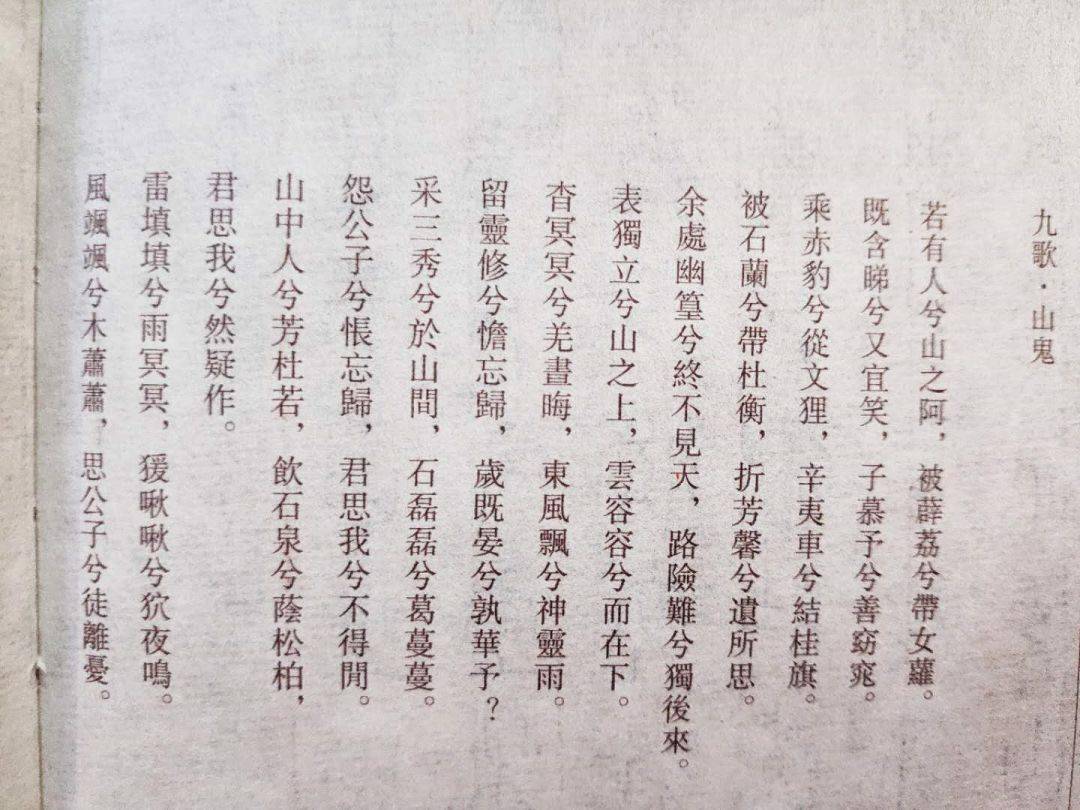 九歌·山鬼
若有人兮山之阿，被薜荔兮帶女蘿。
既含睇兮又宜笑，子慕予兮善窈窕。
乘赤豹兮從文狸，辛夷車兮結桂旗。
被石蘭兮帶杜衡，折芳馨兮遺所思。
余處幽篁兮終不見天，路險難兮獨後來。
表獨立兮山之上，雲容容兮而在下。
杳冥冥兮羌晝晦，東風飄兮神靈雨。
留靈修兮憺忘歸，歲既晏兮孰華予？
采三秀兮於山間，石磊磊兮葛蔓蔓。
怨公子兮悵忘歸，君思我兮不得閒。
山中人兮芳杜若，飲石泉兮蔭松柏，
君思我兮然疑作。
雷填填兮雨冥冥，猨啾啾兮狖夜鳴。
風颯颯兮木蕭蕭，思公子兮徒離憂。